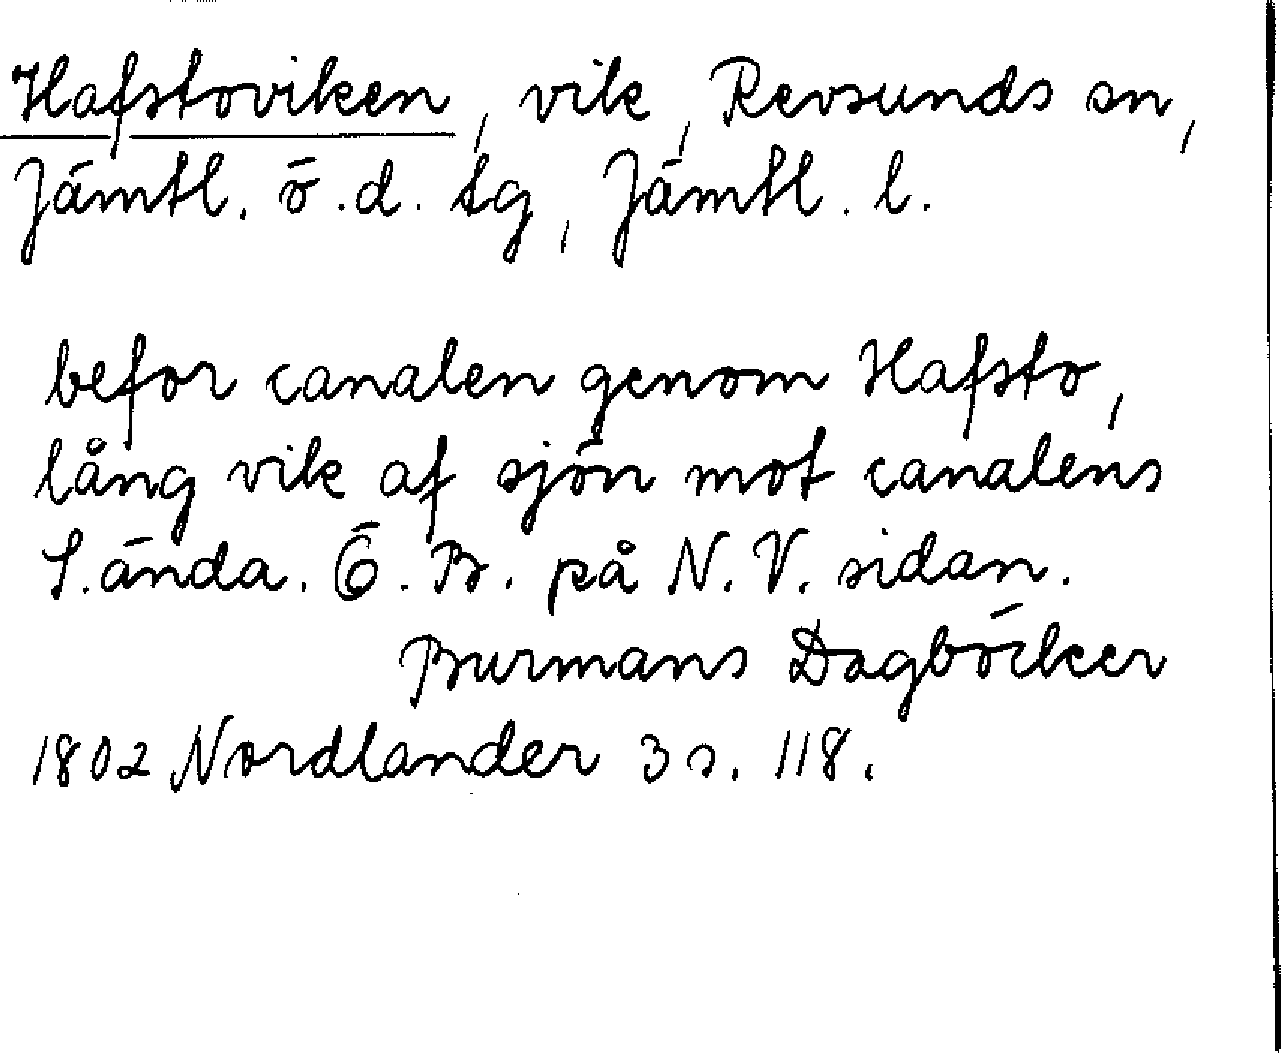 Hafstoviken, vik, Revsunds sn,
Jämtl. ö.d. tg, Jämtl. l.
befor canalen genom Hafsto,
lång vik af sjön mot canalens
S. ända. Ö. B. på N. V. sidan.
Burmans Dagböcker
1802 Nordlander 3 s. 118.